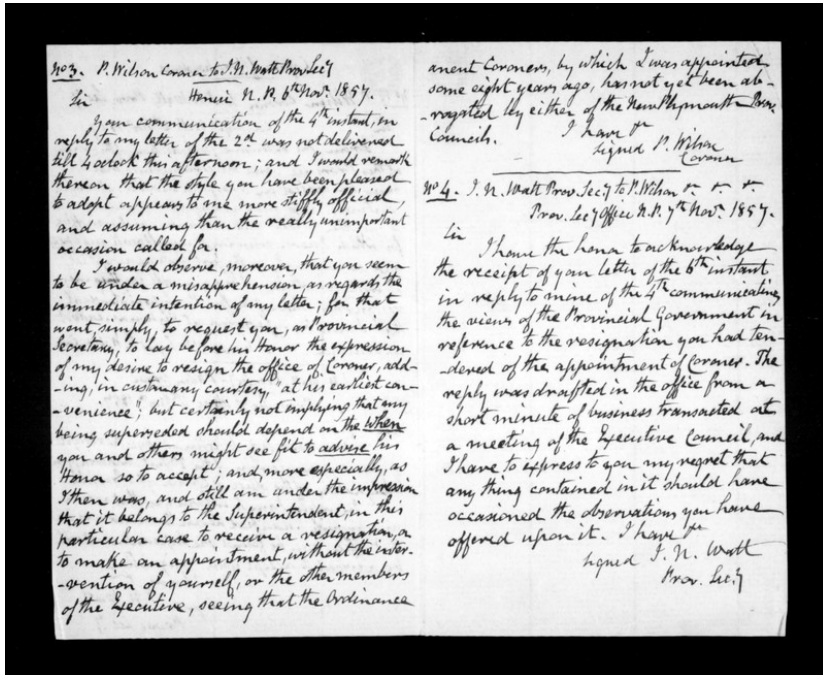 No 3. P. Wilson Coroner to I. N. Watt Prov. Secy
Sir Henui N. P. 6th Novr. 1857.
Your communication of the 4th instant, in
reply to my letter of the 2nd was not delivered
till 4 oclock this afternoon; and I would remark
thereon that the style you have been pleased
to adopt appears to me more stiffly official,
and assuming than the really unimportant
occasion called for.
I would observe, moreover, that you seem
to be under a misapprehension, as regards the
immediate intention of my letter; for that
went, simply, to request you, as Provincial
Secretary, to lay before his Honor the expression
of my desire to resign the office of Coroner, add-
-ing, in customary courtesy, "at his earliest con-
-venience"; but certainly not implying that my
being superseded should depend on the when
you and others might see fit to advise his
Honor so to accept; and, more especially, as
I then was, and still am under the impression
that it belongs to the Superintendent, in this
particular case to receive a resignation, or
to make an appointment, without the inter-
-vention of yourself, or the other members
of the Executive, seeing that the Ordinance
anent Coroners, by which I was appointed
some eight years ago, has not yet been ab-
-rogated by either of the New Plymouth Prov.
Councils. I have &c
signed P. Wilson
Coroner
No 4. I. N. Watt Prov. Secy to P. Wilson &c. &c. &c.
Prov. Secy Office N. P. 7th Novr. 1857.
Sir
I have the honor to acknowledge
the receipt of your letter of the 6th instant
in reply to mine of the 4th communicating
the views of the Provincial Government in
reference to the resignation you had ten-
-dered of the appointment of Coroner. The
reply was drafted in the office from a
short minute of business transacted at
a meeting of the Executive Council, and
I have to express to you my regret that
any thing contained in it should have
occasioned the observations you have
offered upon it. I have &c
signed I. N. Watt
Prov. Secy